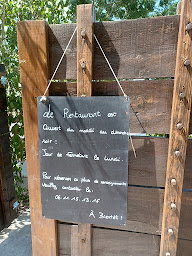 Le Restaurant est
Ouvert du mardi au dimanche
soir :
Jour de fermeture le lundi.
Pour réserver ou plus de renseignements
Veuillez contacter le :
À Bientôt !